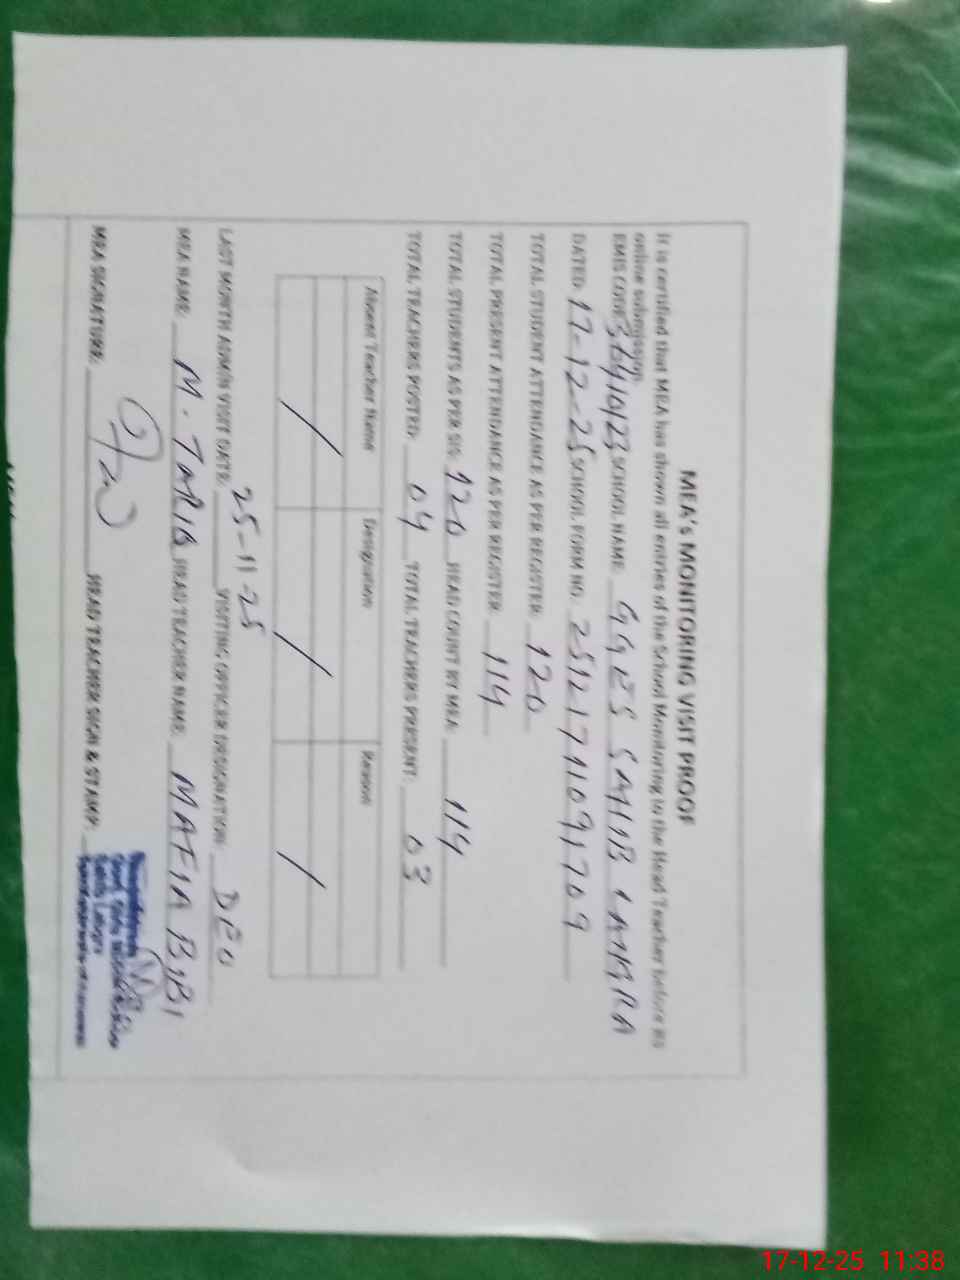 MEA'S MONITORING VISIT PROOF
It is certified that MEA has shown all entries of the School Monitoring to the Head Teacher before its
online submission.
EMIS CODE SCHOOL NAME: GGES SAHIB LAMBRA
DATED: 17-12-25 SCHOOL FORM NO. 251217 1091709
TOTAL STUDENT ATTENDANCE AS PER REGISTER: 120
TOTAL PRESENT ATTENDANCE AS PER REGISTER: 114
TOTAL STUDENTS AS PER SIS: 120 HEAD COUNT BY MEA: 114
TOTAL TEACHERS POSTED: 04 TOTAL TEACHERS PRESENT: 03
Absent Teacher Name Designation Reason
/ / /
LAST MONTH ADMIN VISIT DATE: 25-11-25 VISITING OFFICER DESIGNATION: DEO
MEA NAME: M. TARIQ HEAD TEACHER NAME: MAFIA BIBI
MEA SIGNATURE: HEAD TEACHER SIGN & STAMP:
Govt. Girls
Sahib
17-12-25 11:38